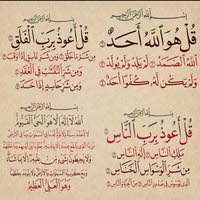 بِسْمِ اللَّهِ الرَّحْمَٰنِ الرَّحِيمِ
قُلْ هُوَ اللَّهُ أَحَدٌ
اللَّهُ الصَّمَدُ لَمْ يَلِدْ وَلَمْ يُولَدْ
وَلَمْ يَكُن لَّهُ كُفُوًا أَحَدٌ
بِسْمِ اللَّهِ الرَّحْمَٰنِ الرَّحِيمِ
قُلْ أَعُوذُ بِرَبِّ الْفَلَقِ
مِن شَرِّ مَا خَلَقَ وَمِن شَرِّ غَاسِقٍ إِذَا وَقَبَ
وَمِن شَرِّ النَّفَّاثَاتِ فِي الْعُقَدِ
وَمِن شَرِّ حَاسِدٍ إِذَا حَسَدَ
بِسْمِ اللَّهِ الرَّحْمَٰنِ الرَّحِيمِ
قُلْ أَعُوذُ بِرَبِّ النَّاسِ
مَلِكِ النَّاسِ إِلَٰهِ النَّاسِ
مِن شَرِّ الْوَسْوَاسِ الْخَنَّاسِ
الَّذِي يُوَسْوِسُ فِي صُدُورِ النَّاسِ مِنَ الْجِنَّةِ وَالنَّاسِ
بِسْمِ اللَّهِ الرَّحْمَٰنِ الرَّحِيمِ
اللَّهُ لَا إِلَٰهَ إِلَّا هُوَ الْحَيُّ الْقَيُّومُ
وَهُوَ الْعَلِيُّ الْعَظِيمُ